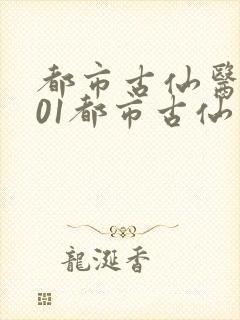 都市古仙醫
01都市古仙
龍涎香